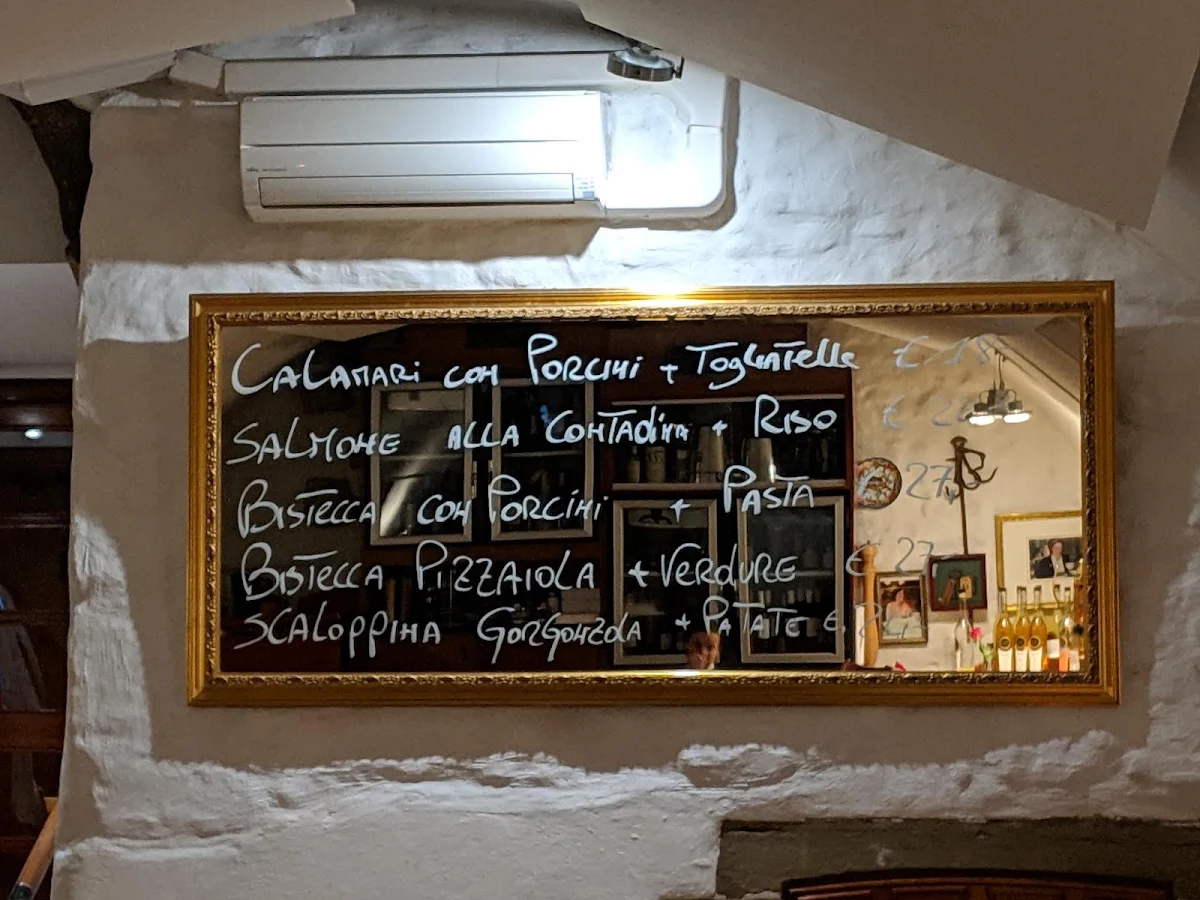 CALAMARI CON PORCINI + TOGLIATELLE €
SALMONE ALLA CONTADINA + RISO €
BISTECCA CON PORCINI + PASTA € 27,
BISTECCA PIZZAIOLA + VERDURE € 27
SCALOPPINA GORGONZOLA + PATATE €